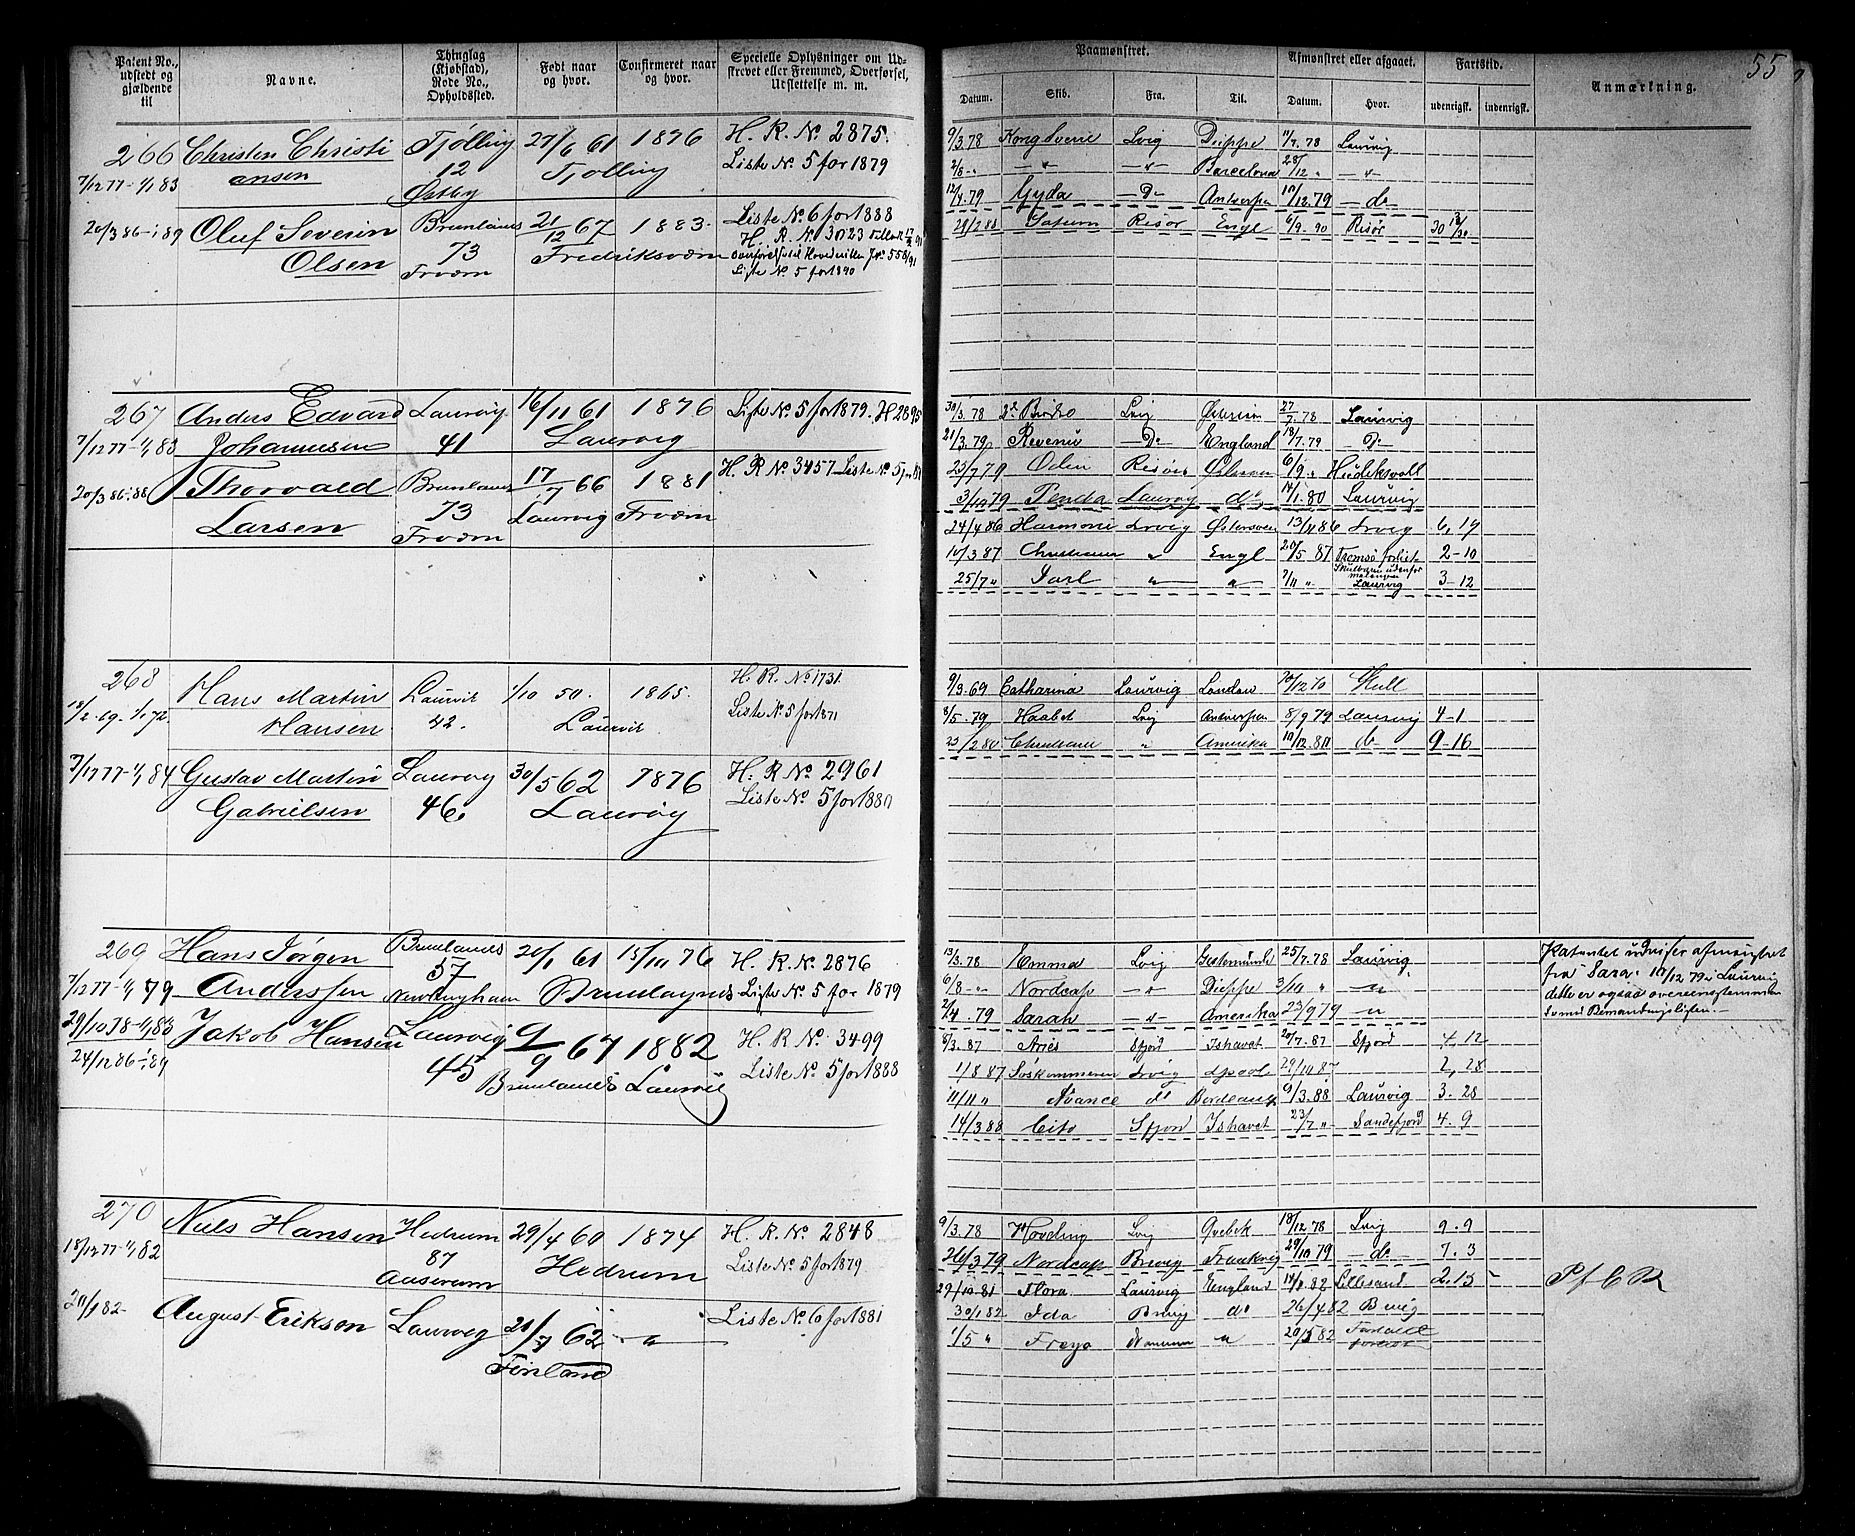 55
Patent No., udstedt og gjældende til
Navne.
Thinglag (Kjøbstad), Rode No., Opholdssted.
Født naar og hvor.
Confirmeret naar og hvor.
Specielle Oplysninger om Udskrevet eller Fremmed, Overførsel, Udslettelse m. m.
Paamønstret.
Datum. Skib. Fra. Til.
Afmønstret eller afgaaet.
Datum. Hvor.
Fartstid.
udenrigsk. indenrigsk.
Anmærkning.
266 Christen Christi Tjølling 27/6 61 1876 H. R. No 2875.
7/12 77-1/1 83 ansen 12 Tjølling Liste No 5 for 1879
Østby
20/3 86-1/1 89 Oluf Severin Brunlanes 21/12 67 1883. Liste No 6 for 1888
Olsen 73 Fredriksværn H. R. No 3023
Frværn
Liste No 5 for 1890
9/3.78 Kong Sverre Lvig Dieppe 11/7.78 Laurvig
2/8 -"- -"- Barcelona 28/12 " -"-
12/4.79 Gyda -Do- Antwerpen 10/12.79 -do-
29/2 88 Saturn Risør Engl 6/9.90 Risør 30
267 Anders Edvard Laurvig 16/11 61 1876 Liste No 5 for 1879. H 2895
7/12 77-1/1 83 Johannesen 41 Laurvig
20/3 86-1/1 88 Thorvald Brunlanes 17/7 66 1881 H. R No 3457 Liste No 5
Larsen 73 Laurvig Frværn
Frværn
30/3.78 Lvig 27/7.78 Laurvig
21/3.79 Revenu -Do- England 18/7.79 -Do-
23/7 79 Odin Risøer 6/9 " Hudiksvall
3/10 79 Penda Laurvig do 17/1.80 Laurvig
24/4 86 Harmoni Lrvig Østersøen 13/11 86 Lrvig 6, 19
10/3 87 " Engl 20/5 87 Tromsø forlist 2-10
25/7 " Jarl " " 7/11 " Laurvig 3-12
268 Hans Martin Laurvik 1/10 50. 1865. H. R. No 1731.
18/2-69.-1/1 72. Hansen 42. Laurvik Liste No. 5 for 1871
7/12 77-1/1 84 Gustav Martin Laurvig 30/5 62 1876 H. R No 2961
Gabrielsen 46. Laurvig Liste No 5 for 1880
9/3.69 Catharina Laurvig London 20/12 70 Hull
8/5.79 Haabet Lvig Antverpen 8/9 79 Laurvig 4-1
23/2 80 Christiane " Amerika 10/12.80 do 9-16
269 Hans Jørgen Brunlanes 20/1 61 15/10 76 H. R. No 2876
7/12 77-1/1 79 Anderssen 57 Brunlanes Liste No. 5 for 1879
29/10.78-1/1 83 Jakob Hansen Laurvig 9/9 67 1882 H. R No 3499
24/12 86-1/1 89 45 Brunlanes Laurvig Liste No. 5 for 1888
13/3.78 Emma Lvig Gestemünde 25/7.78 Laurvig
6/8 -"- Nordcap -"- Dieppe 3/10 " -"-
2/4.79 Sarah -"- Amerika 23/9 79 -"-
Patentet udviser afmønstret
fra Sara 10/12 79 i Laurvig
dette er ogsaa overeensstemmen
med Bemandingslisten.
8/3.87 Aries Sfjord Ishavet 20/7.87 Sfjord 4, 12
1/8 87 Søskummeren Lrvig 29/10 87 2, 28
11/11 " Avance do Bordeaux 9/3.88 Laurvig 3. 28
14/3 88 Cito Sfjord Ishavet 23/7 " Sandefjord 4. 9
270 Niels Hansen Hedrum 29/4 60 1874 H. R. No 2848
18/12 77-1/1 82 87 Hedrum Liste No. 5 for 1879
20/1 82- August Erikson Laurvig 20/7 62 -"- Liste No 6 for 1881
Finland
9/3.78 Høvding Lvig Qvebek 18/12 78 Lvig 9. 9
26/3 79 Nordcap Brevig 29/10 79 -do- 7. 3
29/10.81 Flora Laurvig England 14/1.82 Lillesand 2,15 Pf C R
30/1 82 Ida Brevig do 26/4 82 Brevig
1/5 " Freya " 20/5 82